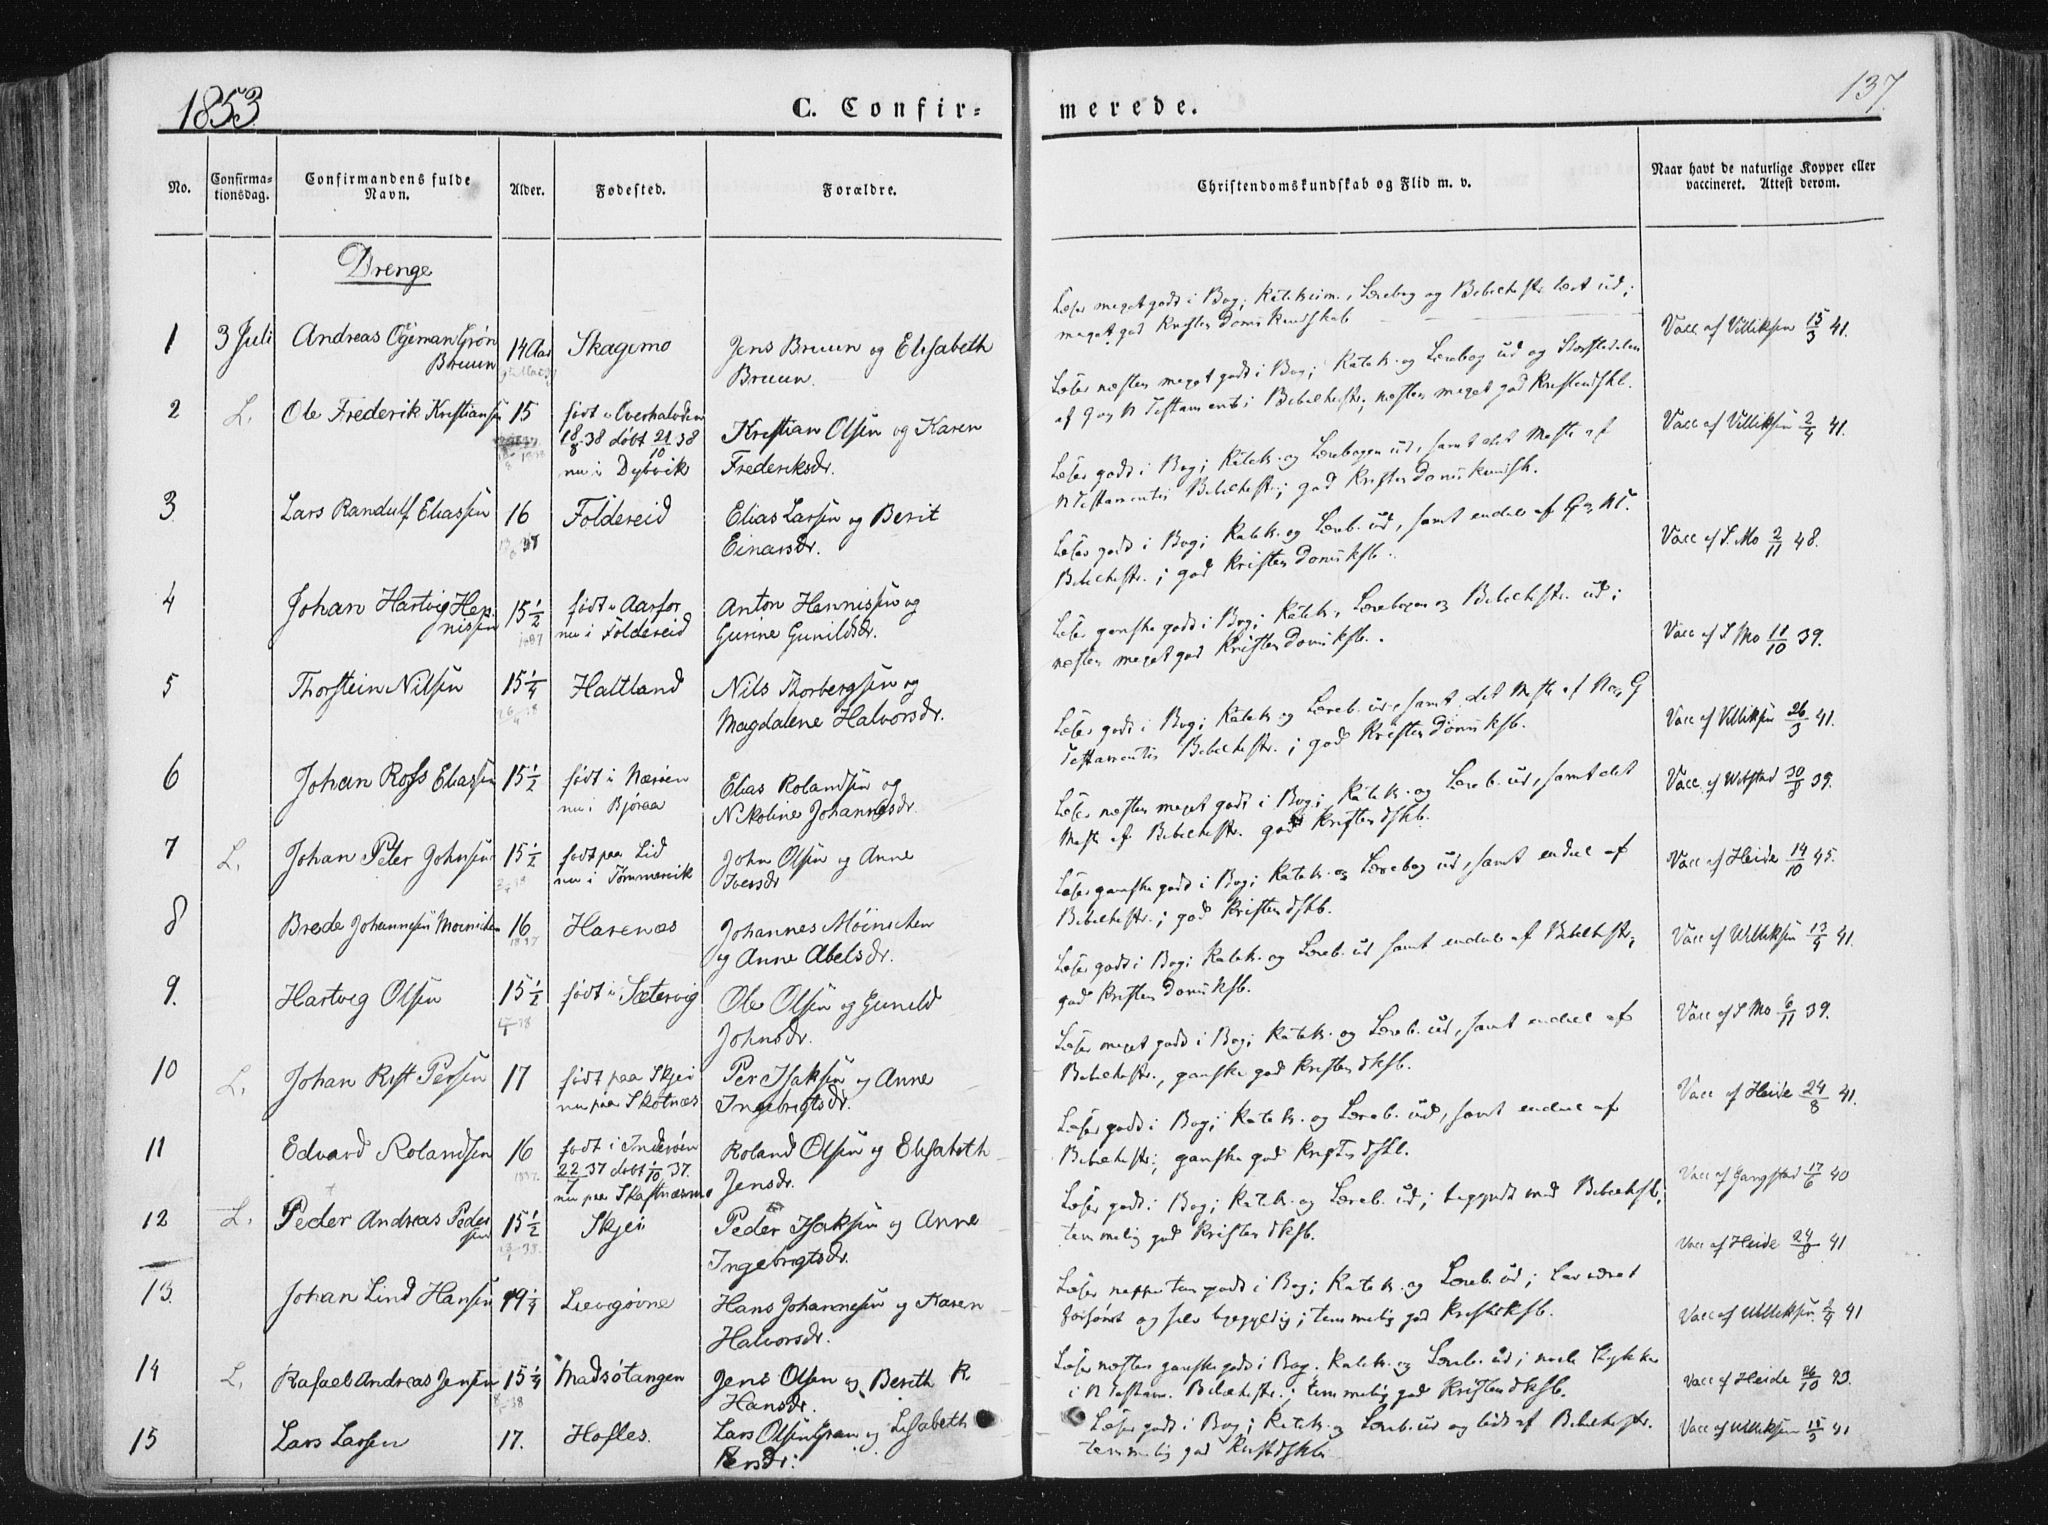 1853
C. Confir-
merede.
137
No.
Confirma-
tionsdag.
Confirmandens fulde
Navn.
Alder.
Fødested.
Forældre.
Christendomskundskab og Flid m. v.
Naar havt de naturlige Kopper eller
vaccineret. Attest derom.
Drenge
1 3 Juli Andreas Ogeman Grøn
Bruun
14 Aar Skagemo
Jens Bruun og Elisabeth
Bruun.
Læser meget godt i Bog; Katekism., Lærebog og Bibelhistr. lært ud;
meget god Kristendomskundskab
Vacc af Villiksen 15/3 41.
2 L. Ole Frederik Kristiansen 15
født i Overhalvden
18/8 38 døbt 21/10 38
nu i Dybvik
Kristian Olsen og Karen
Frederiksdr.
Læser næsten meget godt i Bog; Katek. og Lærebog ud og Størstedelen
af G og N Testamentes Bibelhistr; næsten meget god Kristendskb.
Vacc af Villiksen 2/4 41.
3 Lars Randulf Eliassen 16 Foldereid
Elias Larsen og Berit
Einarsdr.
Læser godt i Bog; Katek. og Lærebogen ud, samt det Meste af
N Testamentes Bibelhistr.; god Kristendomskundsk.
Vacc af S. Mo 2/11 48.
4 Johan Hartvig Hen-
nissen
15 1/2
født i Aarfor
nu i Foldereid
Anton Hennissen og
Gurine Gunildsdr.
Læser godt i Bog; Katek. og Læreb. ud, samt endel af G og NT.
Bibelhistr.; god Kristendomsksb.
Vacc af S Mo 11/10 39.
5 Thorstein Nilsen 15 1/4 Haltland
Nils Thorbergsen og
Magdalene Halvorsdr.
Læser ganske godt i Bog; Katek, Lærebogen og Bibelhistr. ud;
næsten meget god Kristendomsksb.
Vacc af Villiksen 26/3 41.
6 Johan Rofs Eliassen 15 1/2
født i Nærøen
nu i Bjøraa
Elias Rolandsen og
Nikoline Johannesdr.
Læser godt i Bog; Katek. og Læreb. ud, samt det Meste af N og G
Testamentes Bibelhistr.; god Kristendomsksb.
Vacc. af Wibstad 30/8 39.
7 L. Johan Peter Johnsen 15 1/2
født paa Lid
nu i Tømmervik
John Olsen og Anne
Iversdr
Læser næsten meget godt i Bog; Katek. og Læreb. ud, samt det
Meste af Bibelhistr. god Kristendskb.
Vacc af Heide 14/10 45.
8 Brede Johannesen Moinichen 16 Harenæs
Johannes Möinichen
og Anne Abelsdr.
Læser ganske godt i Bog; Katek. og Lærebog ud, samt endel af
Bibelhistr.; god Kristendskb.
Vacc af Williksen 13/4 41.
9. Hartvig Olsen 15 1/2 født i Sætervig
Ole Olsen og Gunild
Johnsdr.
Læser godt i Bog; Katek. og Læreb. ud samt endel af Bibelhistr;
god Kristendomsksb.
Vacc af S Mo 6/11 39.
10 L. Johan Rist Persen 17
født paa Skjei
nu paa Skotnæs
Per Isaksen og Anne
Ingebrigtsdr.
Læser meget godt i Bog; Katek. og Læreb. ud, samt endel af
Bibelhistr., ganske god Kristendksb.
Vacc af Heide 24/8 41.
11 Edvard Rolandsen 16
født i Inderøen
22/7 37 døbt 1/10 37.
nu paa Skaftnæsmo
Roland Olsen og Elisabeth
Jensdr.
Læser godt i Bog; Katek. og Læreb. ud, samt endel af
Bibelhistr; ganske god Kristendskb.
Vacc af Gangstad 17/6 40
12 L. Peder Andreas Peder
sen
15 1/2 Skjei
Peder Isaksen og Anne
Ingebrigtsdr.
Læser godt i Bog; Katek. og Læreb. ud; begyndt med Bibelhistr,
temmelig god Kristendksb.
Vacc af Heide 24/8 41
13 Johan Lind Hansen 19 1/4
Hans Johannesen og Karen
Halvorsdr.
Læser neppe tem godt i Bog; Katek. og Læreb. ud; har været
forsømt og selv ; temmelig god Kristdksb.
Vacc af Williksen 2/4 41
14 L. Rafael Andreas Jensen 15 1/4 Madsøtangen
Jens Olsen og Bereth K
Hansdr.
Læser næsten ganske godt i Bog. Katek. og Læreb. ud; nogle Stykker
i N Testam. Bibelhistr.; temmelig god Kristendksb.
Vacc af Heide 26/10 43.
15 Lars Larsen 17. Hofles.
Lars Olsen Gran og Elisabeth
Persdr.
Læser godt i Bog; Katek. og Læreb. ud og lidt af Bibelhistr.
temmelig god Kristdskb
Vacc af Williksen 15/3 41